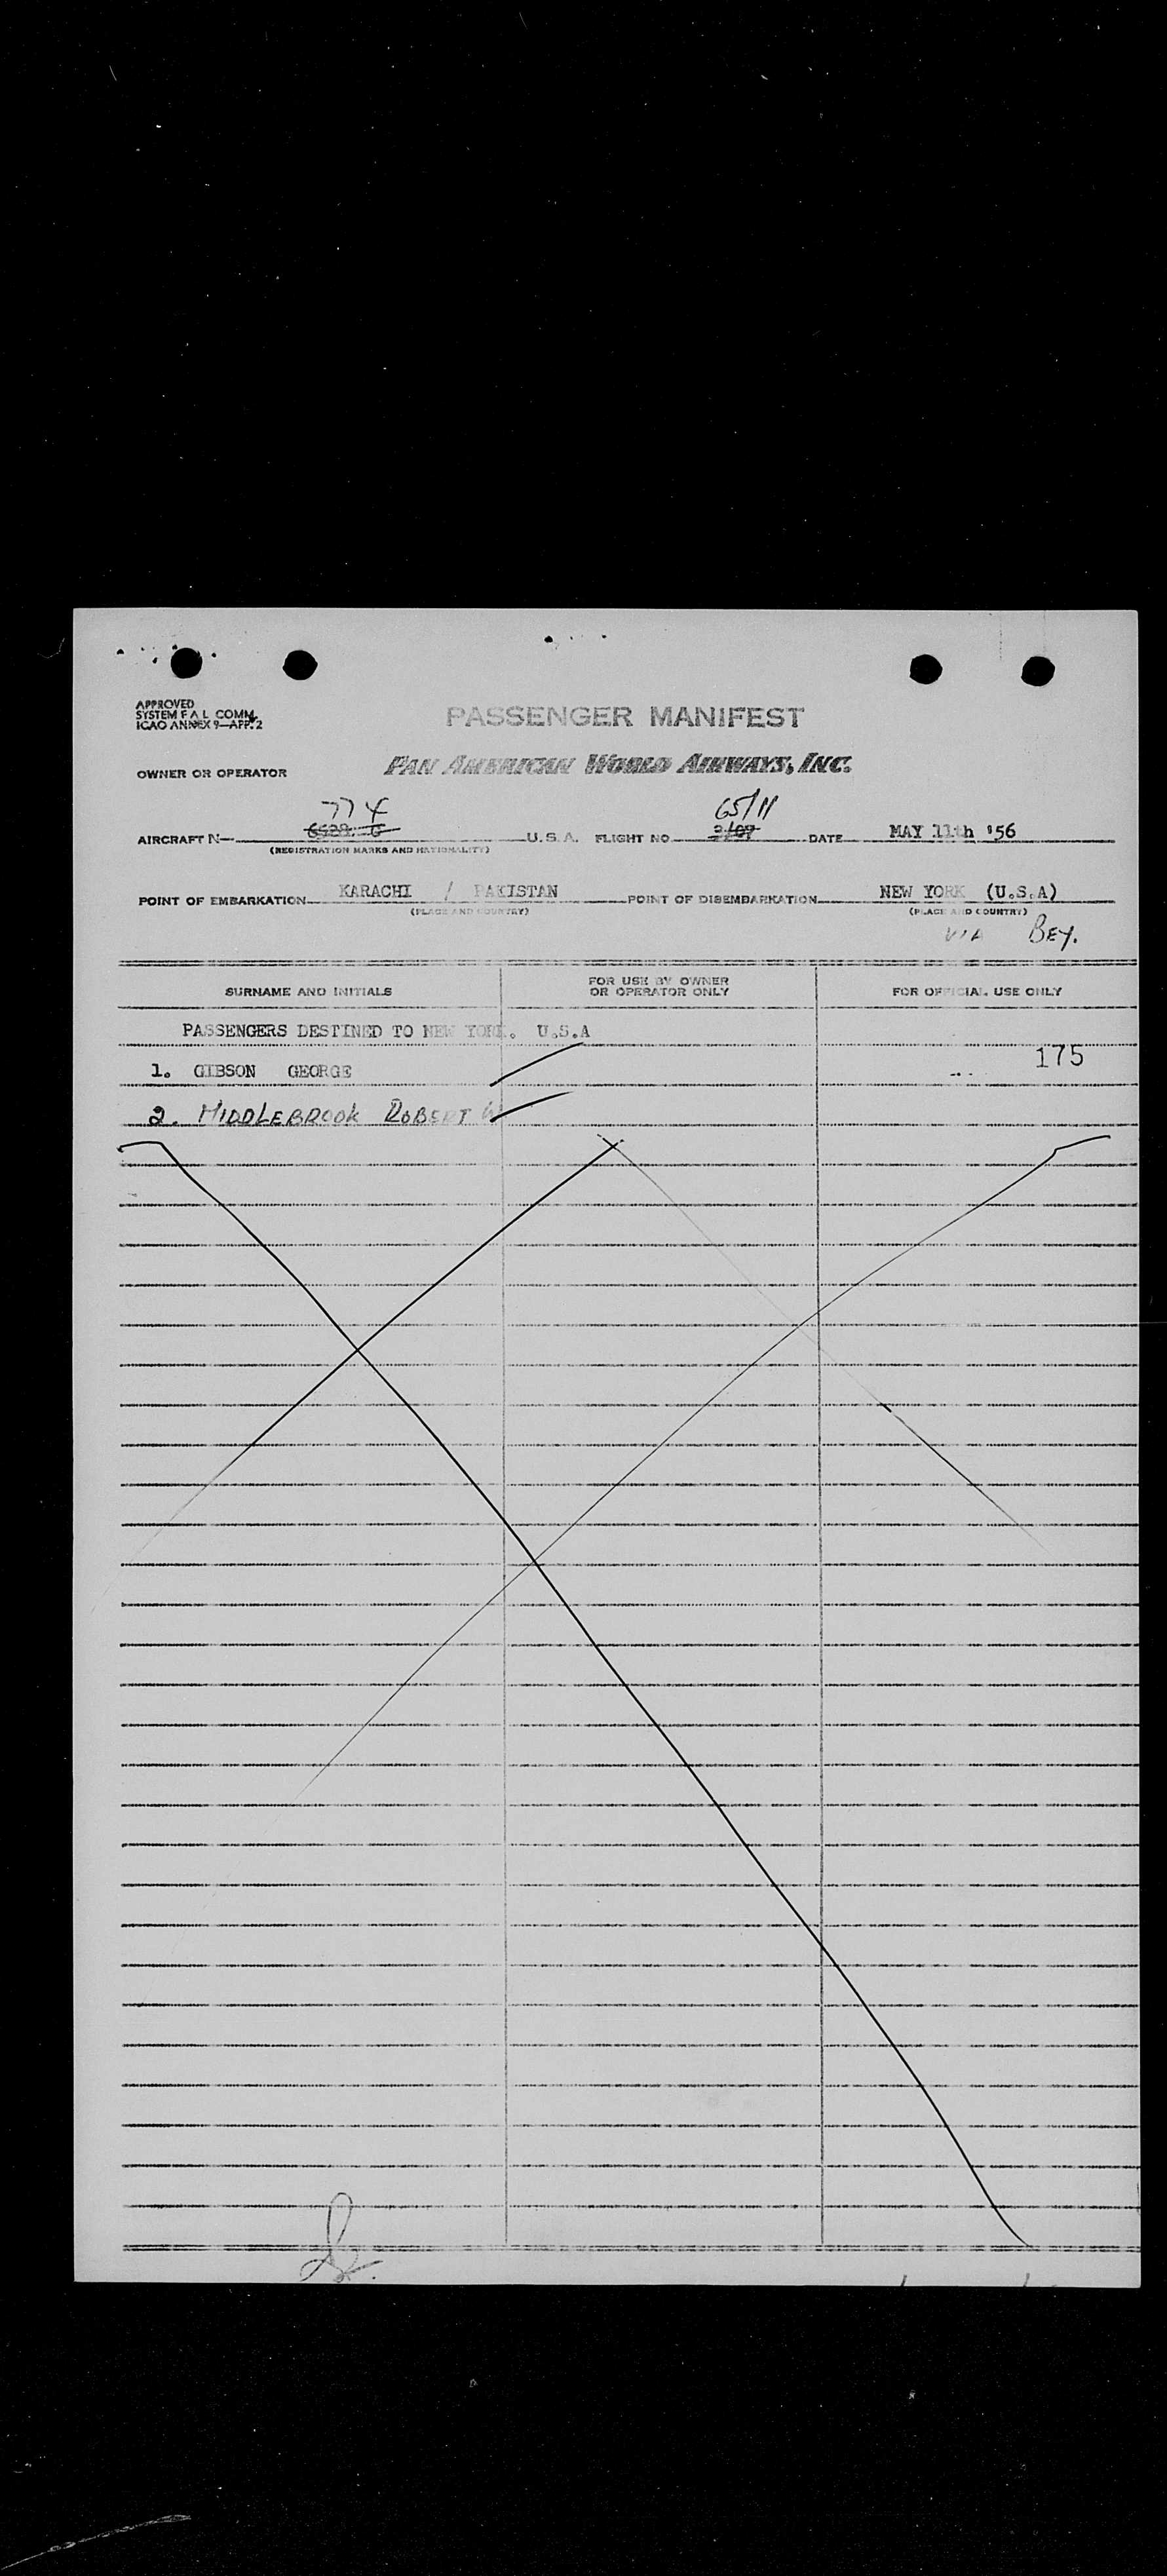 APPROVED
SYSTEM F A L COMM.
ICAO ANNEX 9—APP. 2
PASSENGER MANIFEST
OWNER OR OPERATOR PAN AMERICAN WORLD AIRWAYS, INC.
774 65/11
AIRCRAFT N— U.S.A. FLIGHT NO. 2/09 DATE MAY 11th '56
(REGISTRATION MARKS AND NATIONALITY)
POINT OF EMBARKATION KARACHI / PAKISTAN POINT OF DISEMBARKATION NEW YORK (U.S.A)
(PLACE AND COUNTRY) (PLACE AND COUNTRY)
VIA BEY.
SURNAME AND INITIALS FOR USE BY OWNER OR OPERATOR ONLY FOR OFFICIAL USE ONLY
PASSENGERS DESTINED TO NEW YORK. U.S.A
1. GIBSON GEORGE 175
2. MIDDLEBROOK ROBERT W